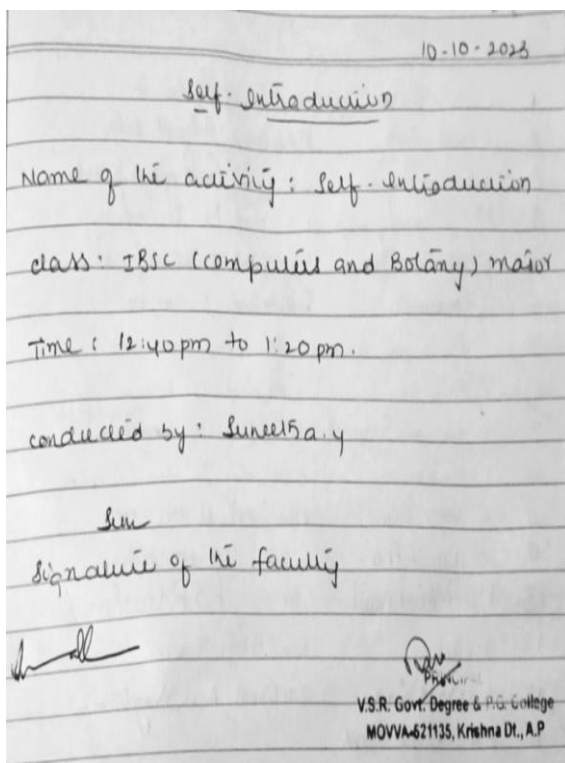 10-10-2023
Self-Introduction
Name of the activity: Self-Introduction
class: IBSC (computers and Botany) major
Time: 12:40pm to 1:20pm.
conducted by: Suneetha.y
Signature of the faculty
V.S.R. Govt. Degree & P.G. College
MOVVA-521135, Krishna Dt., A.P